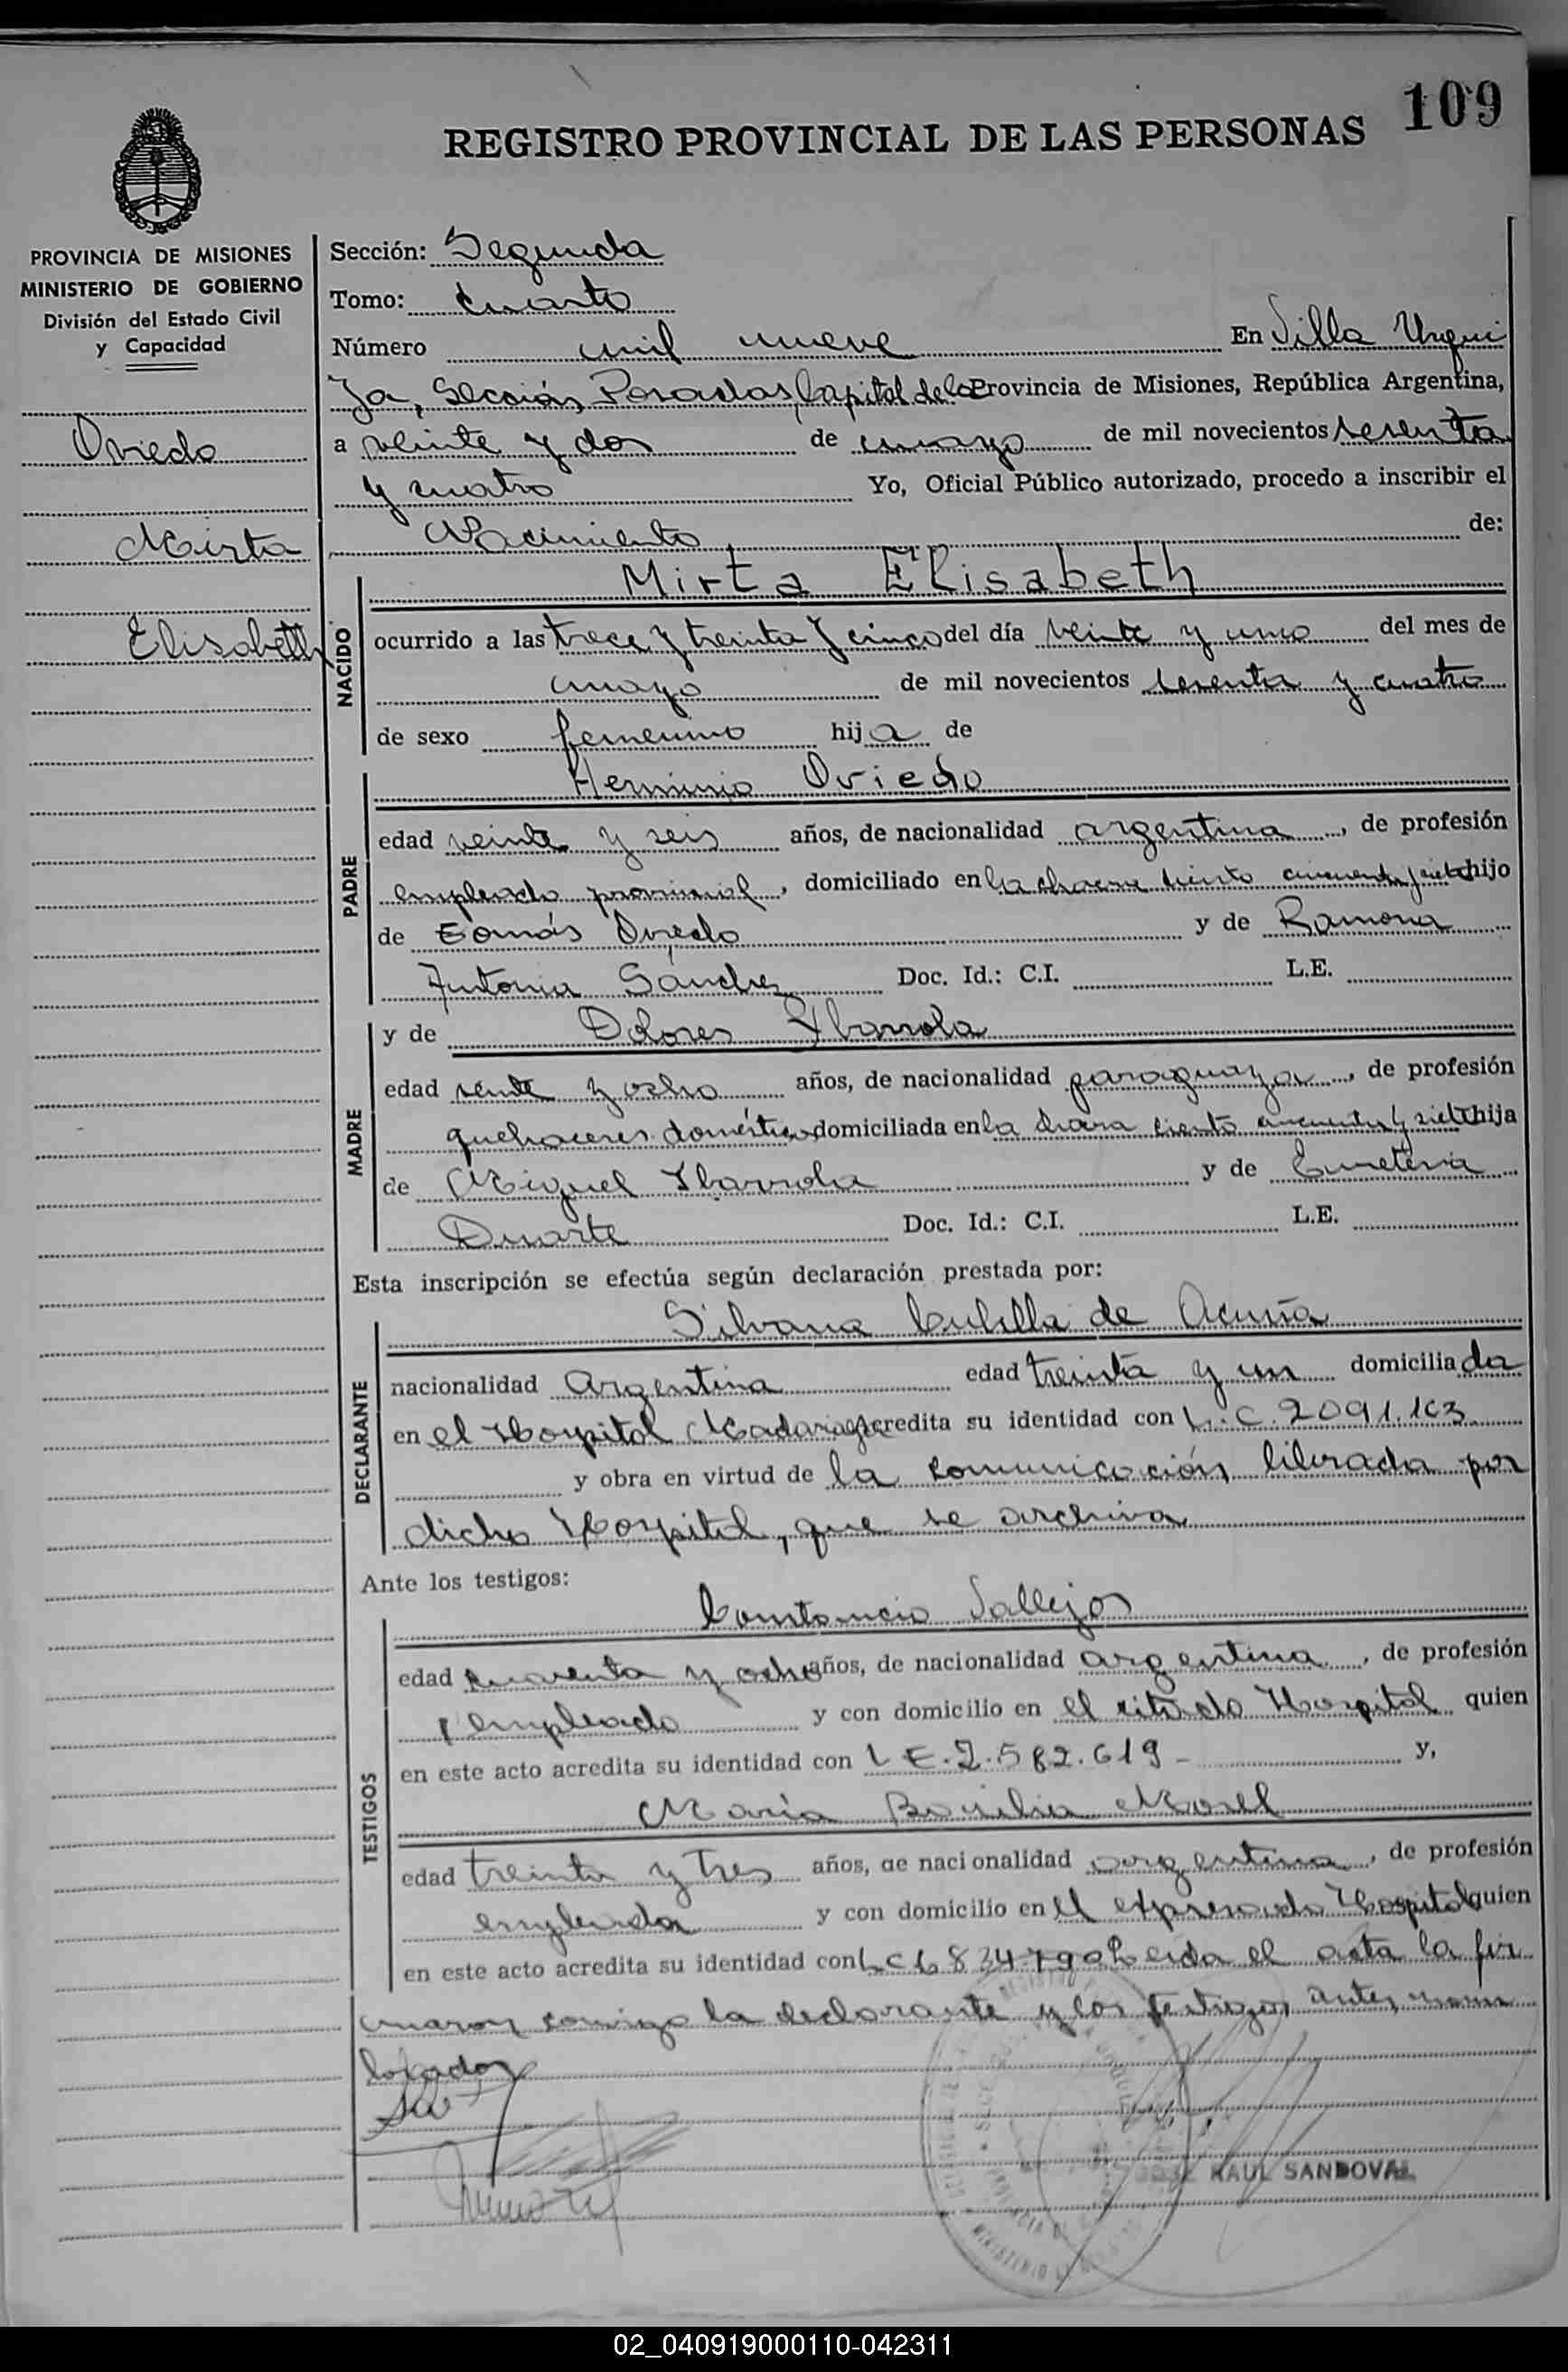 109
REGISTRO PROVINCIAL DE LAS PERSONAS
PROVINCIA DE MISIONES
MINISTERIO DE GOBIERNO
División del Estado Civil
y Capacidad
Oviedo
Mirta
Elisabeth
Sección: Segunda
Tomo: Cuarto
Número mil nueve En Villa Urqui
za, Sección Posadas, Capital de la Provincia de Misiones, República Argentina,
a veinte y dos de mayo de mil novecientos sesenta
y cuatro Yo, Oficial Público autorizado, procedo a inscribir el
Nacimiento de:
NACIDO
Mirta Elisabeth
ocurrido a las trece y treinta y cinco del día veinte y uno del mes de
mayo de mil novecientos sesenta y cuatro
de sexo femenino hija de
PADRE
Herminio Oviedo
edad veinte y seis años, de nacionalidad argentina, de profesión
empleado provincial, domiciliado en la chacra ciento cincuenta y siete hijo
de Tomás Oviedo y de Ramona
Antonia Sánchez Doc. Id.: C.I. L.E.
MADRE
y de Dolores Ybarrola
edad veinte y ocho años, de nacionalidad paraguaya, de profesión
quehaceres domésticos domiciliada en la chacra ciento cincuenta y siete hija
de Miguel Ybarrola y de
Duarte Doc. Id.: C.I. L.E.
Esta inscripción se efectúa según declaración prestada por:
DECLARANTE
Silvana de Acuña
nacionalidad Argentina edad treinta y un domiciliada
en el Hospital Madariaga acredita su identidad con L.C. 2091.163
y obra en virtud de la comunicación librada por
dicho Hospital, que se archiva
Ante los testigos:
TESTIGOS
Constancio Vallejos
edad cuarenta y ocho años, de nacionalidad argentina, de profesión
empleado y con domicilio en el citado Hospital quien
en este acto acredita su identidad con L E. 2.582.619 y,
María Morel
edad treinta y tres años, de nacionalidad argentina, de profesión
empleada y con domicilio en el expresado Hospital quien
en este acto acredita su identidad con L C Leida el acta la fir
maron conmigo la declarante y los testigos antes mem
RAUL SANDOVAL
02_040919000110-042311